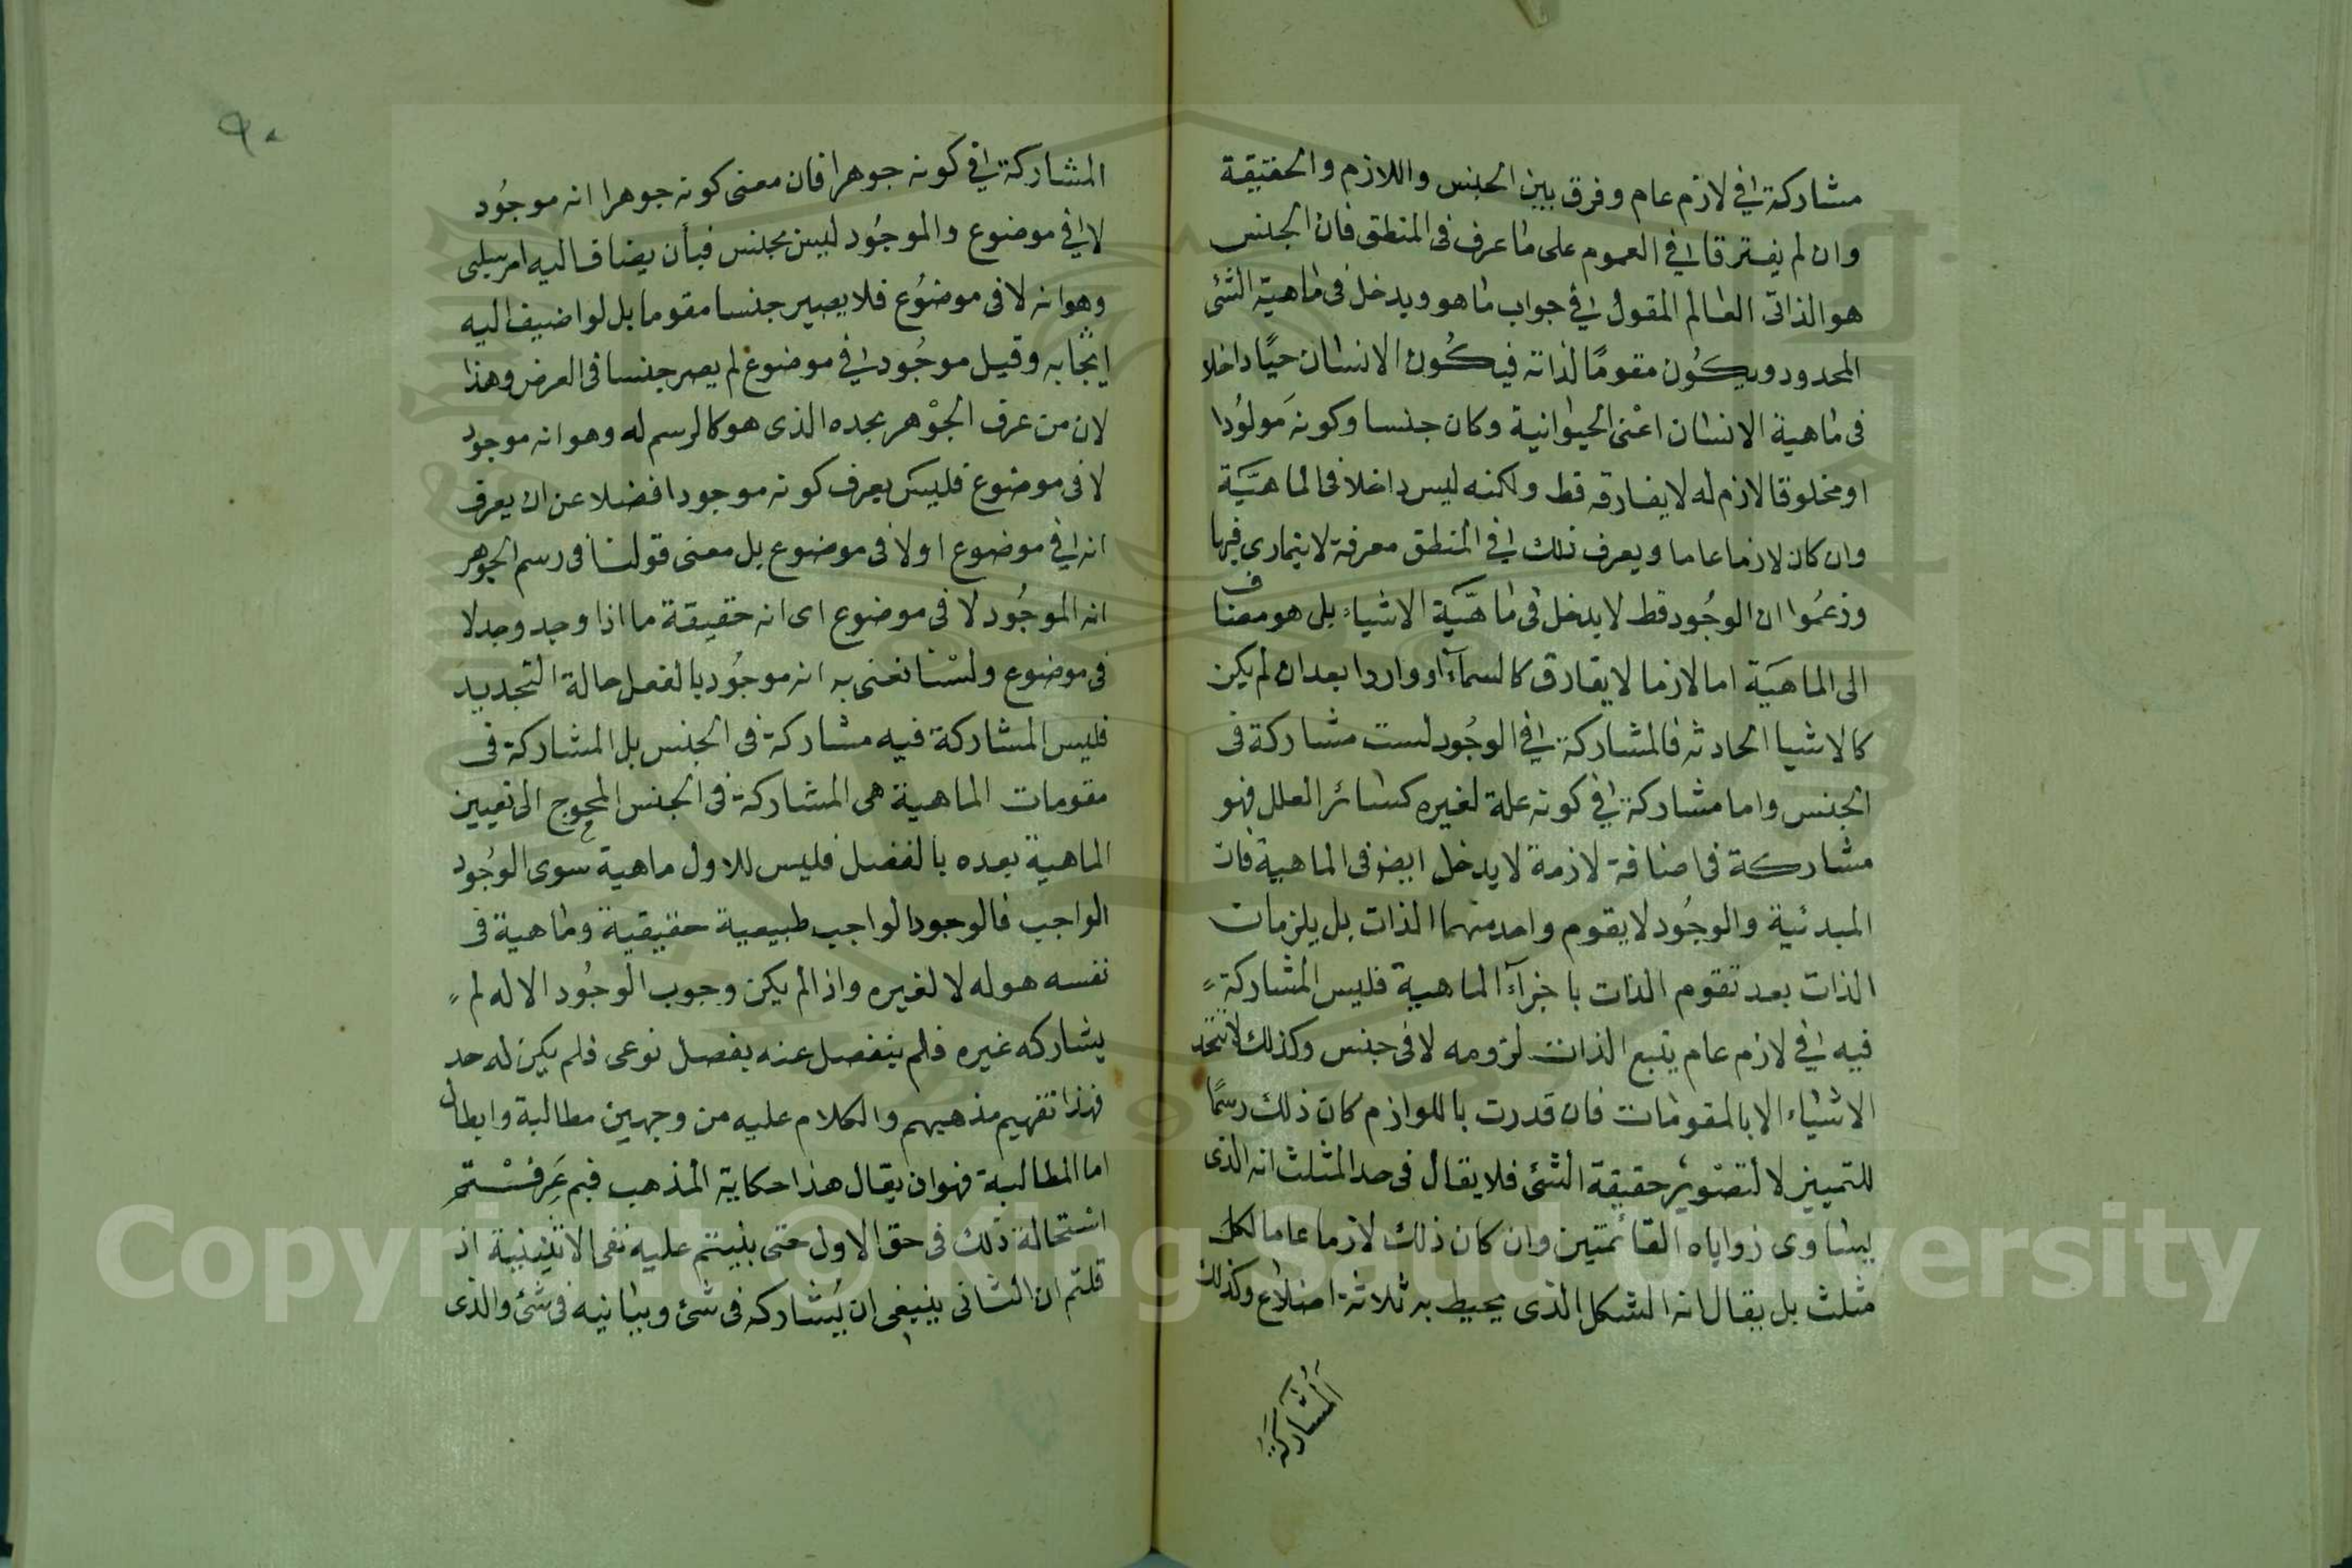 مشاركة في لازم عام وفرق بين الجنس واللازم والحقيقة
وان لم يفترقا في العموم على ما عرف فى المنطق فان الجنس
هو الذاتى العالم المقول في جواب ما هو ويدخل فى ماهية الشئ
المحدود ويكون مقومًا لذاته فيكون الانسان حيًا داخلا
فى ماهية الانسان اعنى الحيوانية وكان جنسا وكونه مولودا
او مخلوقا لازم له لا يفارقه قط ولكنه ليس داخلا فى الماهيَّة
وان كان لازما عاما ويعرف ذلك في المنطق معرفة لا يتمارى فيها
وزعموا ان الوجُود قط لا يدخل فى ماهيَّة الاشياء بل هو مضاف
الى الماهيَة اما لازما لا يفارق كالسمآء او واردا بعد ان لم يكن
كالاشيا الحادثه فالمشاركة في الوجُود لست مشاركة فى
الجنس واما مشاركة في كونه علة لغيره كسائر العلل فهو
مشاركة فى اضافة لازمة لا يدخل ايضا فى الماهية فان
المبدئية والوجُود لا يقوم واحد منهما الذات بل يلزمان
الذات بعد تقوم الذات باجزآء الماهية فليس المشاركة
فيه في لازم عام يتبع الذات لزومه لا فى جنس وكذلك لا تتحد
الاشياء الا بالمقومات فان قدرت باللوازم كان ذلك رسمًا
للتمييز لا لتصوير حقيقة الشئ فلا يقال فى حد المثلث انه الذى
يساوى زواياه القائمتين وان كان ذلك لازما عاما لكل
مثلث بل يقال انه الشكل الذى يحيط به ثلاثة اضلاع وكذلك
المُشَارَكَةُ
٩٠
المشاركة في كونه جوهرا فان معنى كونه جوهرا انه موجُود
لا في موضوع والموجُود ليس بجنس فبأن يضاف اليه امر سلبى
وهو انه لا فى موضوُع فلا يصير جنسا مقوما بل لو اضيف اليه
ايجابه وقيل موجُود في موضوع لم يصر جنسا فى العرض وهذا
لان من عرف الجوْهر بحده الذى هو كالرسم له وهو انه موجود
لا فى موضوع فليس يعرف كونه موجودا فضلا عن ان يعرف
انه في موضوع او لا فى موضوع بل معنى قولنا فى رسم الجوهر
انه الموجُود لا فى موضوع اى انه حقيقة ما اذا وجد وجد لا
فى موضوع ولسْنا نعنى به انه موجُود بالفعل حالة التجديد
فليس المشاركة فيه مشاركة فى الجنس بل المشاركة فى
مقومات الماهية هى المشاركة فى الجنس المحوج الى تعيين
الماهية بعده بالفصل فليس للاول ماهية سوى الوجُود
الواجب فالوجود الواجب طبيعية حقيقية وماهية فى
نفسه هو له لا لغيره واذا لم يكن وجوب الوجُود الا له لم
يشاركه غيره فلم ينفصل عنه بفصل نوعى فلم يكن له حد
فهذا تفهيم مذهبهم والكلام عليه من وجهين مطالبة وابطال
اما المطالبة فهو ان يقال هذا حكاية المذهب فبم عَرفْتم
استحالة ذلك فى حق الاول حتى بنيتم عليه نفى الاثنينية اذ
قلتم ان الثانى ينبغى ان يُشاركه فى شئ ويباينه فى شئ والذى
Copyright © King Saud University